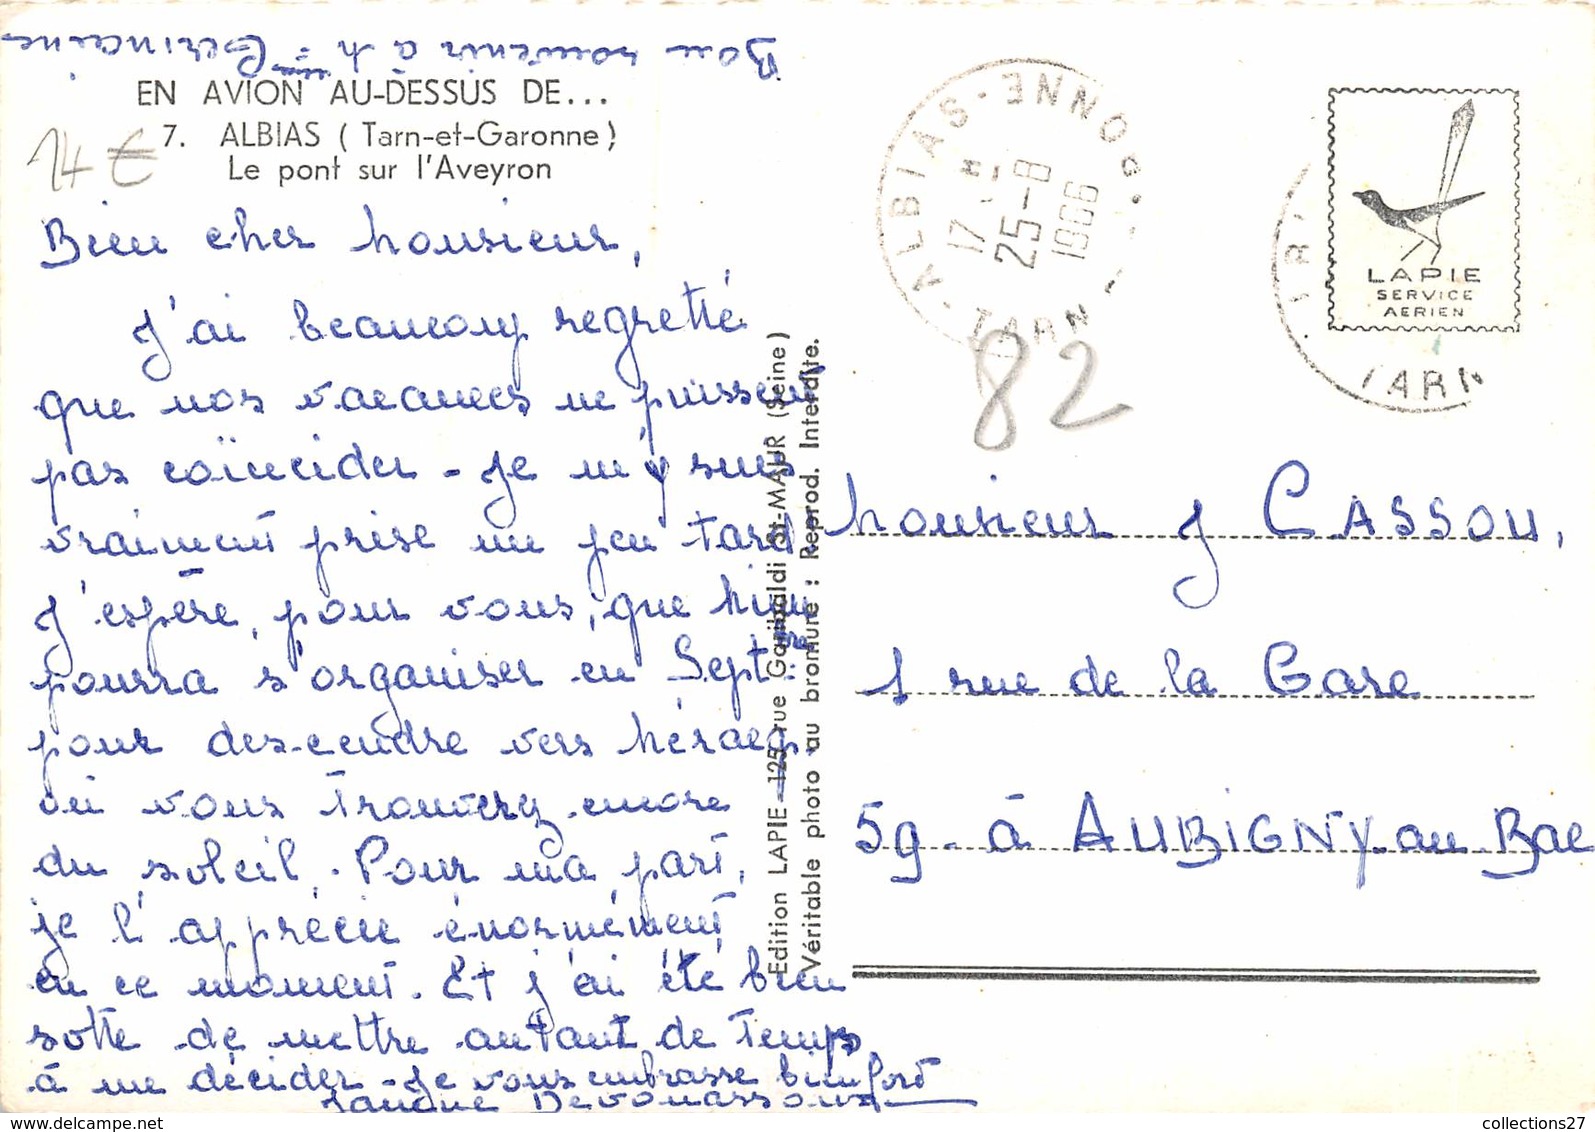 Bon souvenir à Mme Germaine
EN AVION AU-DESSUS DE...
7. ALBIAS ( Tarn-et-Garonne )
Le pont sur l'Aveyron
14 €
Bien cher Monsieur,
J'ai beaucoup regretté
que nos vacances ne puissent
pas coïncider - Je m'y suis
vraiment prise un peu tard
J'espère, pour vous, que Mimi
pourra s'organiser en Sept.
pour descendre vers
où vous trouverez encore
du soleil. Pour ma part,
je l'apprécie énormément
en ce moment. Et j'ai été bien
sotte de mettre autant de temps
à me décider - Je vous embrasse bien fort
Edition LAPIE - 125, rue Garibaldi St-MAUR (Seine)
Véritable photo au bromure : Reprod. Interdite.
ALBIAS
17 H
25-8
1966
TARN
82
LAPIE
SERVICE
AERIEN
TARN
Monsieur J CASSOU,
1 rue de la Gare
59 - à AUBIGNY-au Bac
collections27